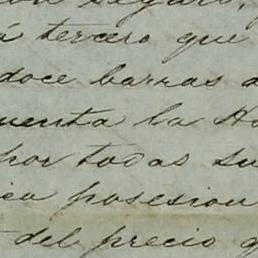 á tercero que
doce barras
uenta la
por todas su
ica posesion
del precio